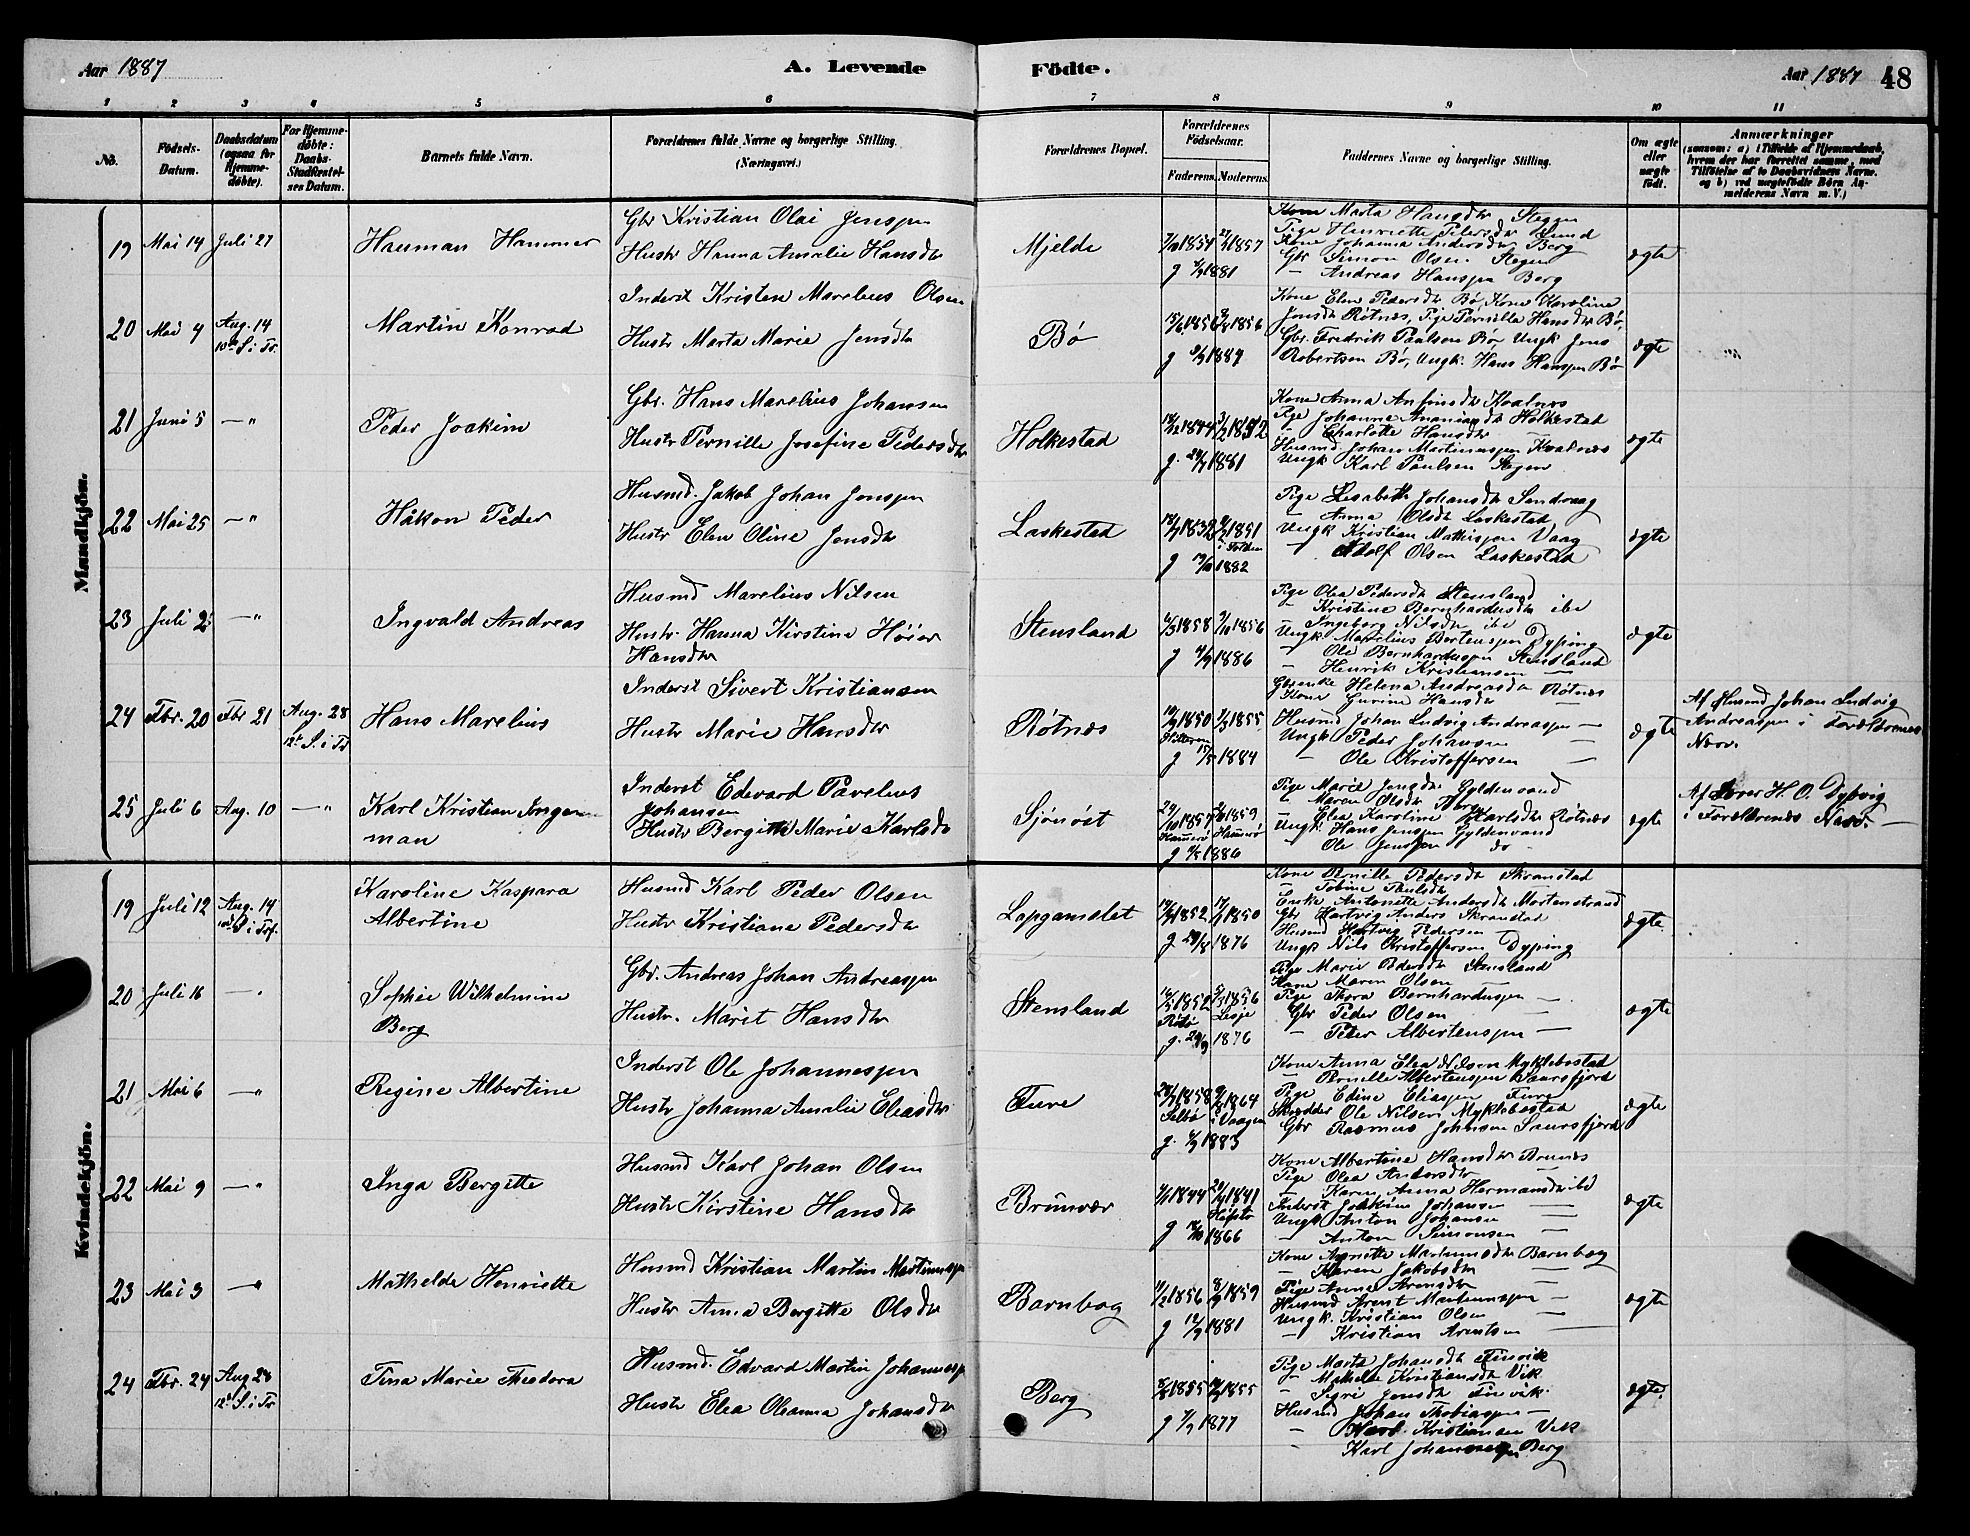 Aar 1887
A. Levende
Födte.
Aar 1887
48
1 2 3 4 5 6 7 8 9 10 11
No.
Födsels-
Datum.
Daabsdatum
(ogsaa for
Hjemme-
døbte).
For Hjemme-
døbte:
Daabs-
Stadfæstel-
ses Datum.
Barnets fulde Navn.
Forældrenes fulde Navne og borgerlige Stilling.
(Næringsvei.)
Forældrenes Bopæl.
Forældrenes
Födselsaar.
Faderens. Moderens.
Faddernes Navne og borgerlige Stilling.
Om ægte
eller
uægte
födt.
Anmærkninger
(saasom: a) i Tilfælde af Hjemmedaab,
hvem der har forrettet samme, med
Tilføielse af to Daabsvidners Navne.
og b) ved uægtefödte Börn An-
melderens Navn m.V.)
Mandkjön.
19 Mai 14 Juli 27
Hauman Hammer
Gbr Kristian Olai Jenssen
Hustr Hanna Amalie Hansdtr
Mjelde
1854 1857
g 1881
Kone Marta Hansdtr Steggen
Pige Henriette Petersdtr Lund
Kone Johanna Andersdtr Berg
Gbr Simon Olsen Stegen
— Andreas Hanssen Berg
ægte
20 Mai 4 Aug. 14
10de S. i Tr.
Martin Konrad
Inderst Kristen Marelius Olsen
Hustr Marta Marie Jensdtr
Bø
1856 1856
g 1884
Kone Elen Pedersdtr Bø, Kone Karoline
Jonsdtr Røtnæs, Pige Pernilla Hansdtr Bø,
Gbr. Fredrik Paulsen Bø, Ungk Jens
Robertsen Bø, Ungk. Hans Hanssen Bø
ægte
21 Juni 5 —"
Peder Joakim
Gbr. Hans Marelius Johansen
Hustr Pernille Josefine Pedersdtr
Holkestad
1844 1852
g. 1881
Kone Anna Anfinsdtr Kvalnes
Pige Johanna Ananiasdtr Holkestad
— Charlotte Hansdtr
Husmd Johan Martinussen Kvalnæs
Ungk Karl Paulsen Stegen
ægte
22 Mai 25 —"
Håkon Peder
Husmd. Jakob Johan Jonssen
Hustr Elen Oline Jonsdtr
Laskestad
1832 1851
i Folden
g 1882
Pige Lisabeth Johansdtr Sandvaag
— Anna Olsdtr Laskestad
Ungk Kristian Mathissen Vaag
— Adolf Olsen Laskestad
ægte
23 Juli 2 —"
Ingvald Andreas
Husmd Marelius Nilsen
Hustr. Hanna Kirstine Høier
Hansdtr
Stensland
1858 1856
g 1886
Pige Olea Pedersdtr Stensland
— Kristine Bernhardusdtr ibe
— Ingeborg Nilsdtr ibe
Ungk Marelius Bertenssen Dyping
— Ole Bernhardussen Stensland
— Henrik Kristiansen —
ægte
24 Fbr. 20 Fbr 21 Aug. 28
12te S. i Tr
Hans Marelius
Inderst Sivert Kristiansen
Hustr Marie Hansdtr
Røtnæs
1850 1855
g 15/5 1884
Gbrenke Helena Andreasdtr Røtnæs
Kone Gurine Hansdtr —
Husmd Johan Ludvig Andreassen —
Ungk Peder Johansen —
— Ole Kristoffersen —
ægte
Af Husmd Johan Ludvig
Andreassen i Forældrenes
Nærv.
25 Juli 6 Aug. 10 —"
Karl Kristian Inger-
man
Inderst Edevard Pavelius
Johansen
Hustr Bergitte Marie Karlsdtr
Sjønøst
1857 1859
Hamerø Hamerø
g 1886
Pige Marie Jensdtr Gyldenvand
— Maren Olsdtr Berg
— Elea Karoline Karlsdtr Røtnæs
Ungk Hans Jenssen Gyldenvand
— Ole Jenssen do
ægte
Af Lærer H. O. Dybvig
i Forældrenes Nærv. —
Kvindekjön.
19 Juli 12 Aug. 14
10de S. i Tr.
Karoline Kaspara
Albertine
Husmd Karl Peder Olsen
Hustr Kristiane Pedersdtr
Lapgamslet
1852 1850
g 1876
Kone Pernille Pedersdtr Skranstad
— Tobine Paulsdtr
Enke Antonette Andersdtr Mortenstrand
Gbr Hartvig Anders Skranstad
Husmd Hartvig Pedersen —
Ungk Nils Kristoffersen Dyping
ægte
20 Juli 16 — .
Sophie Wilhelmine
Berg
Gbr. Andreas Johan Andreassen
Hustr. Marit Hansdtr
Stensland
1852 1856
Rødø Lesje
g. 1876
Pige Marie Pedersdtr Stensland
Kone Maren Olsen —
Pige Thora Bernhardussen —
Gbr Peder Olsen —
— Peter Albertenssen —
ægte
21 Mai 6 —"
Regine Albertine
Inderst Ole Johannessen
Hustr Johanna Amalie Eliasdtr
Fure
1858 1864
Selbo i Vaagen
g. 1883
Kone Anna Elea Nilsen Myklebostad
— Pernille Albertenssen Laursfjord
Pige Edine Eliassen Fure
Skrædder Ole Nilsen Myklebostad
Gbr Rasmus Johnsen Laursfjord
ægte
22 Mai 9 —"
Inga Bergitte
Husmd Karl Johan Olsen
Hustr Kirstine Hansdtr
Brunvær
1844 1841
g 1866
Kone Albertine Hansdtr Brunæs
Pige Olea Andersdtr —
— Karen Anna Hermansdtr ibd
Inderst Joakim Johansen —
Ungk Anton Johansen —
— Anton Simonsen —
ægte
23 Mai 3 —"
Mathelde Henriette
Husmd Kristian Martin Martinussen
Hustr Anna Bergitte Olsdtr
Barnbog
1856 1859
g 1881
Kone Anriette Martinusdtr Barnbog
— Maren Jakobsdtr —
Pige Anna Arensdtr —
Husmd Arent Martinussen —
Ungk. Kristian Olsen —
— Kristian Arntsen —
ægte
24 Fbr. 24 Aug 28
12te S. i Tr
Tina Marie Theodora
Husmd. Edvard Martin Johannessen
Hustr Elea Oleanna Johansdtr
Berg
1855 1855
g 1877
Pige Marta Johansdtr Finvik
— Mathelde Kristiansdtr Vik
— Sigri Jensdtr Finvik.
Husmd Johan Thobiassen —
— Karl Kristiansen Vik
— Karl Johannessen Berg
ægte.